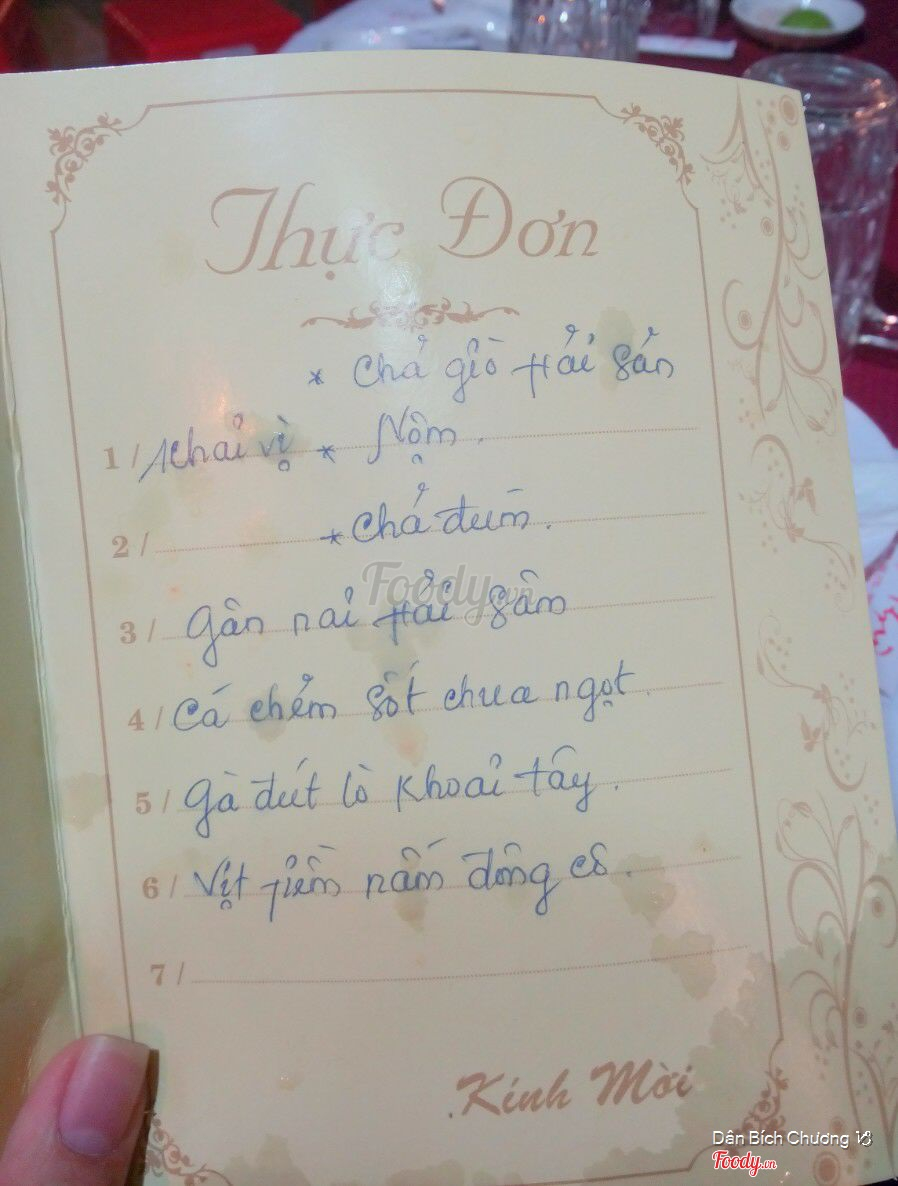 Thực Đơn
* Chả giò Hải Sản
1 / Khai vị * Nộm.
2 / * Chả đùm.
3 / Gân nai Hải Sâm
4 / Cá chẻm Sốt chua ngọt.
5 / Gà đút lò Khoai Tây.
6 / Vịt tiềm nấm đông cô.
7 /
Kính Mời
Foody.vn
Dân Bích Chương
Foody.vn